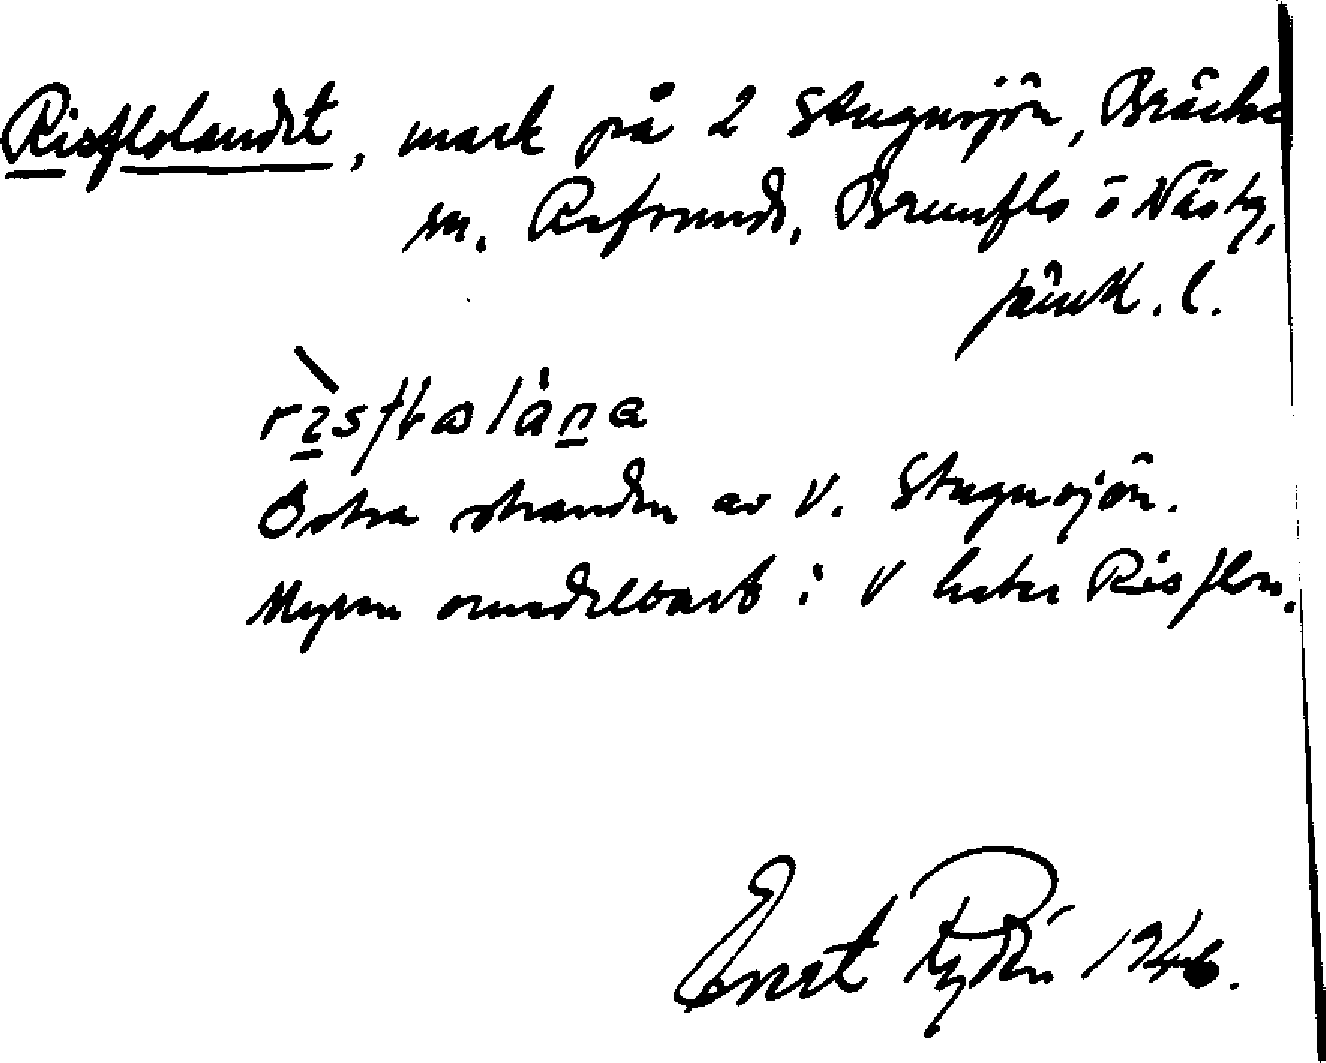 Risflolandet, mark på 2 Stugusjön, Bräcke
m. Refsunds, Brunflo o Näskg,
Jämtl. l.
Östra stranden av V. Stugusjön.
Myren omedelbart i V heter Risflon.
Ernst Rydén 1946.